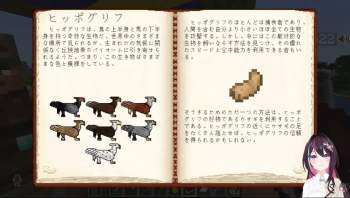 ヒッポグリフ
ヒッポグリフは、鷲の上半身と馬の下半
身を持つ奇妙な生物だ。世界中のさまざま
な場所で見られるが、生まれた
関係なく
れるようだ。つまり、この生き物はさまざ
まな色と模様をしている。
ヒッポグリフのほとんどは捕食者であり、
人間を含む自分より小さいほぼ全ての生物
を攻撃する。しかし、中にはこの敵対的な
生物を飼いならす方法を見つけ、その優れ
たスピードと空中能力を利用できる者もい
る。
そうするためのただ一つの方法は、ヒッポ
グリフの好物であるウサギを利用すること
である。ヒッポグリフの近くにウサギの足
をたくさん落とせば、ヒッポグリフの信頼
を得られるかもしれない。
22